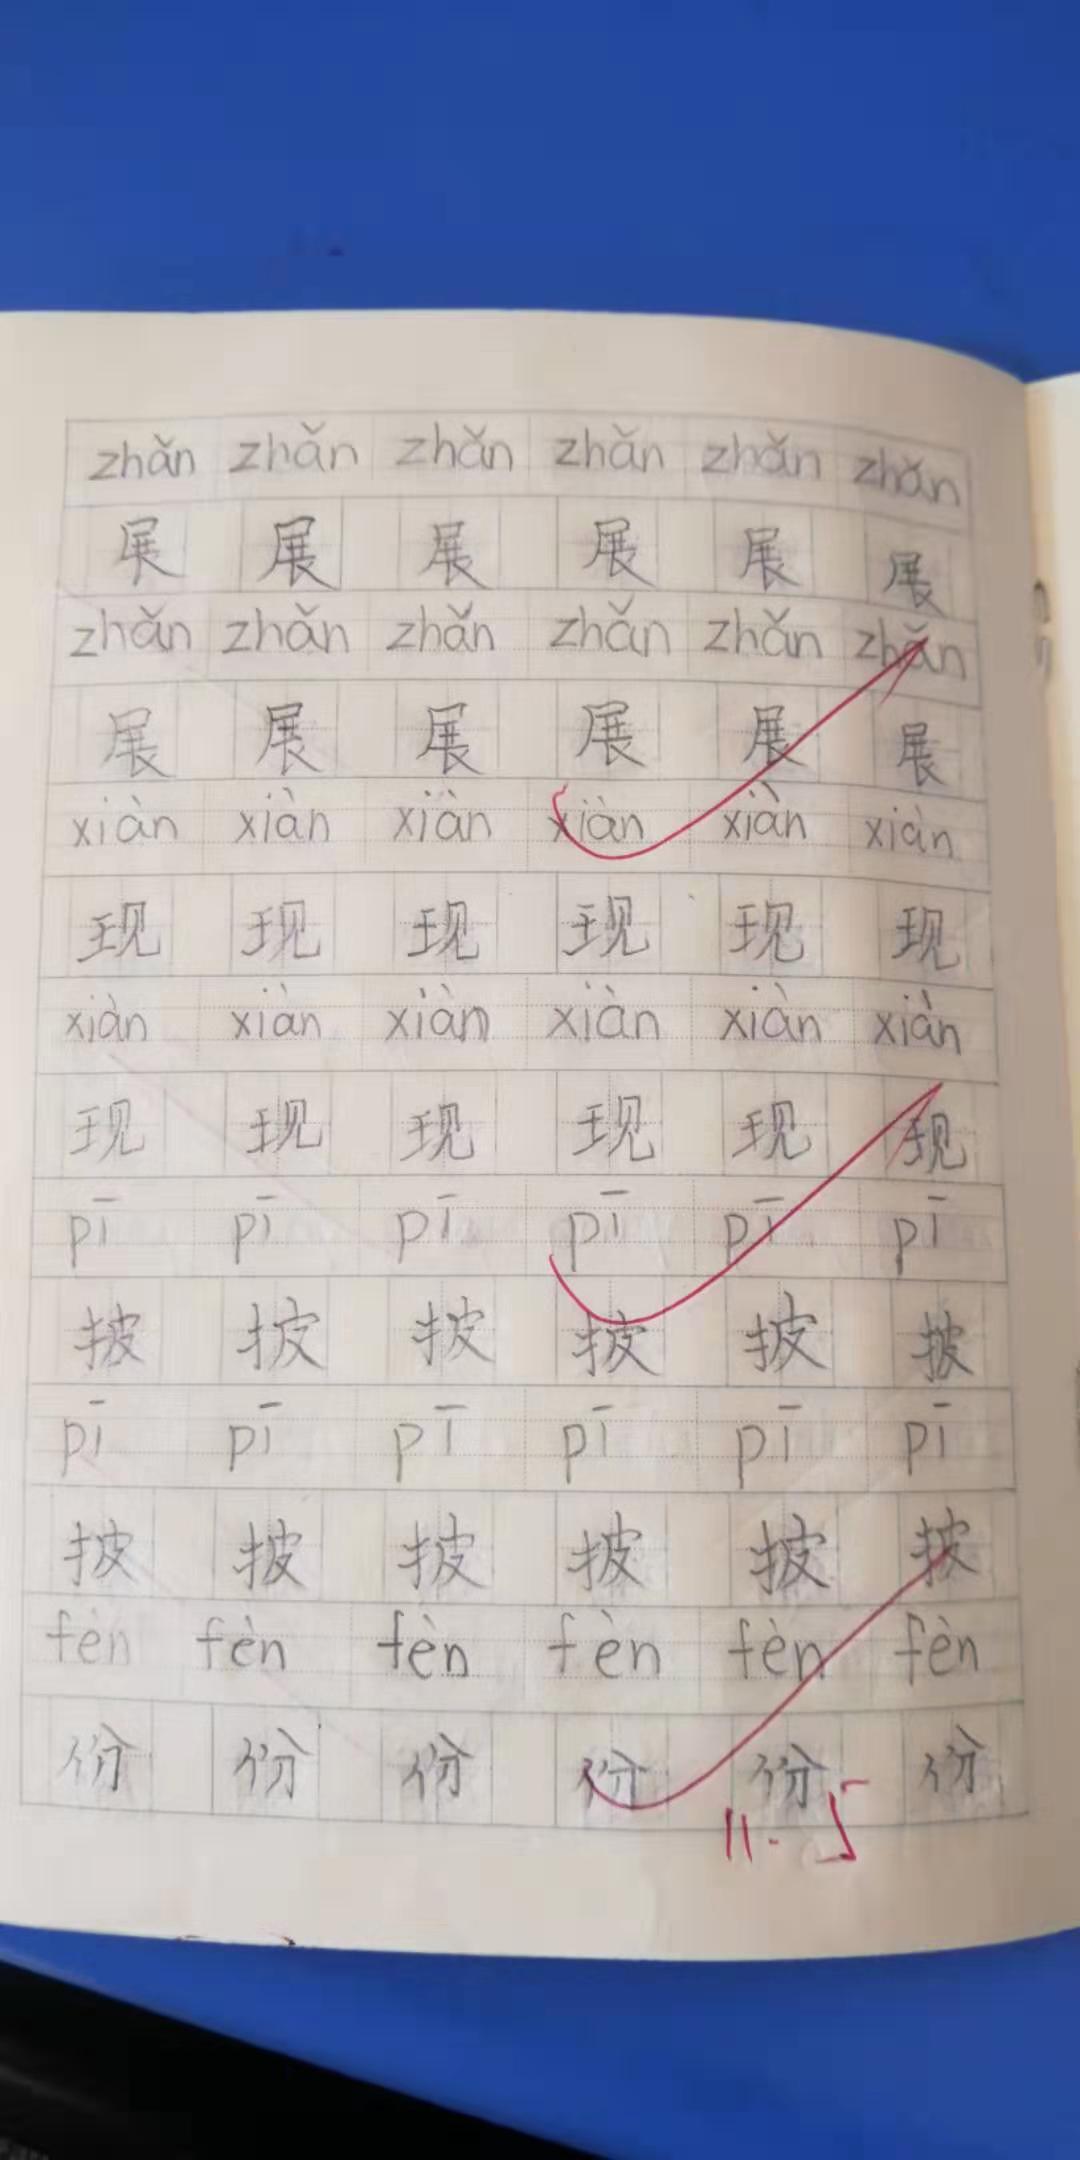 zhǎn zhǎn zhǎn zhǎn zhǎn zhǎn
展 展 展 展 展 展
zhǎn zhǎn zhǎn zhǎn zhǎn zhǎn
展 展 展 展 展 展
xiàn xiàn xiàn xiàn xiàn xiàn
现 现 现 现 现 现
xiàn xiàn xiàn xiàn xiàn xiàn
现 现 现 现 现 现
pī pī pī pī pī pī
披 披 披 披 披 披
pī pī pī pī pī pī
披 披 披 披 披 披
fèn fèn fèn fèn fèn fèn
份 份 份 份 份 份
11.5